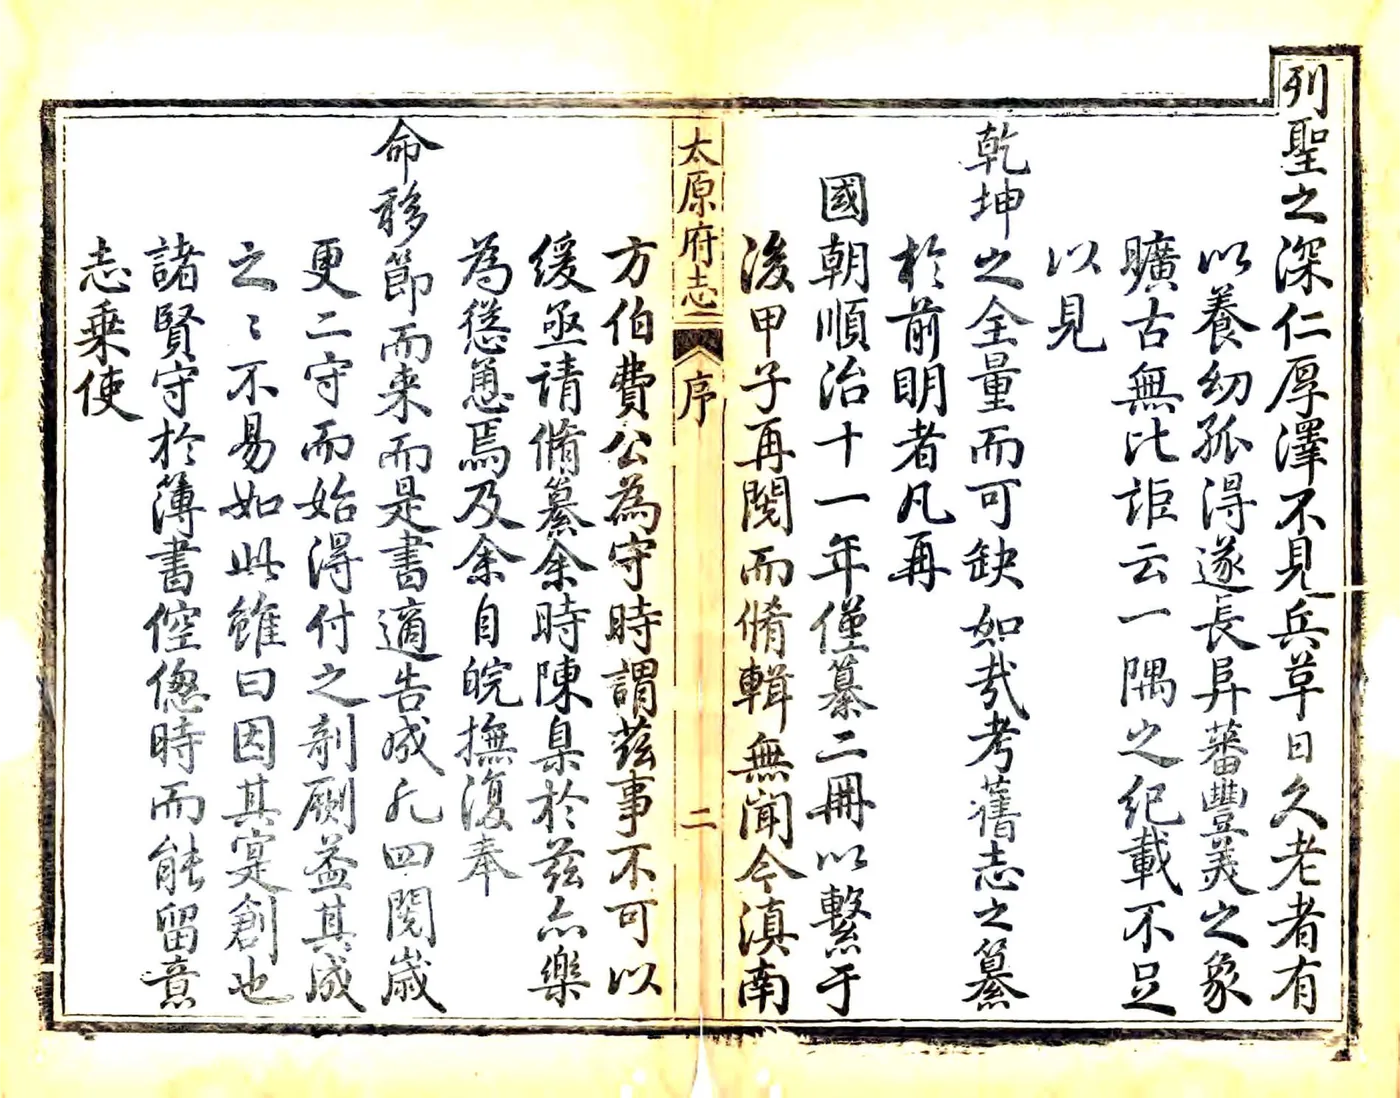 列聖之深仁厚澤不見兵革日久老者有
以養幼孤得遂長昇蕃豐美之象
曠古無比詎云一隅之紀載不足
以見
乾坤之全量而可缺如㢤考舊志之纂
於前明者凡再
國朝順治十一年僅纂二冊以繫于
後甲子再閱而脩輯無聞今滇南
太原府志
序
二
方伯費公為守時謂茲事不可以
緩亟請脩纂余時陳臬於茲亦樂
為慫恿焉及余自皖撫復奉
命移節而来而是書適告成凢四閱歲
更二守而始得付之剞劂葢其成
之〻不易如此雖曰因其寔創也
諸賢守於薄書倥傯時而能留意
志乗使